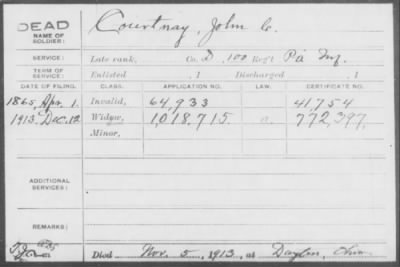 DEAD Courtnay, John C.
NAME OF
SOLDIER:
SERVICE: Late rank, Co. D, 100 Reg't Pa Inf.
TERM OF
SERVICE: Enlisted , 1 Discharged , 1
DATE OF FILING. CLASS. APPLICATION NO. LAW. CERTIFICATE NO.
1865, Apr. 1. Invalid, 64,933 41,754
1913, Dec. 12 Widow, 1,018,715 772,397,
Minor,
ADDITIONAL
SERVICES:
REMARKS:
Died Nov. 5, 1913, at Dayton, Ohio